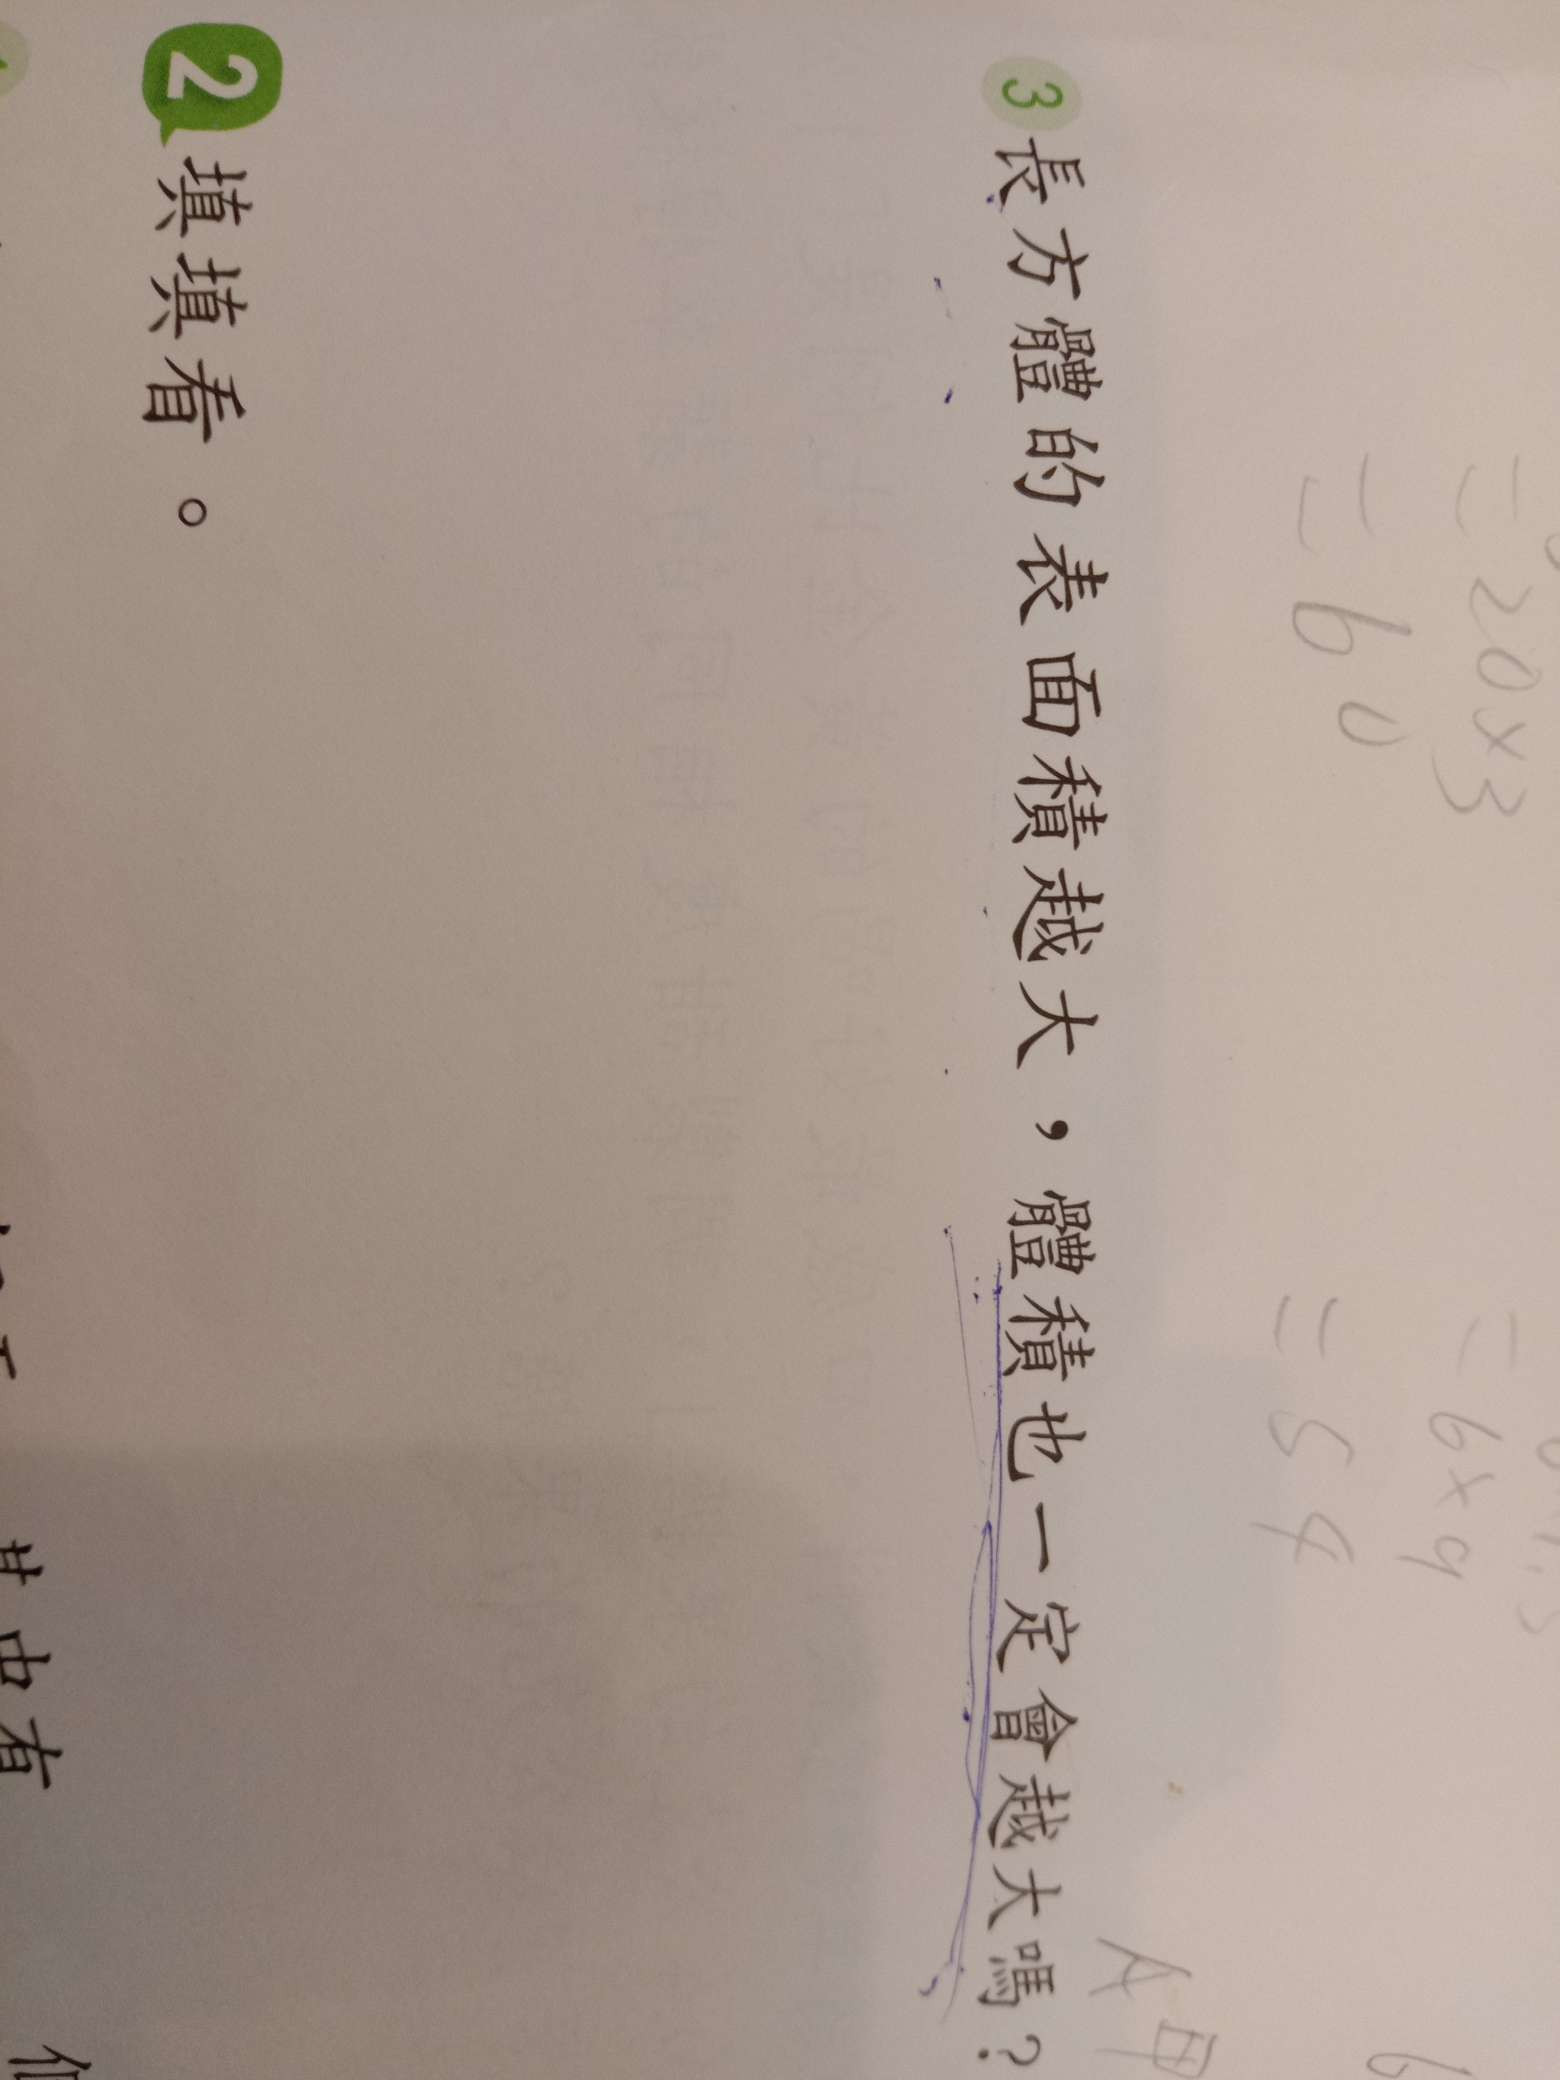 = 20×3
= 6×9
= 60
= 54
A甲
6
3 長方體的表面積越大，體積也一定會越大嗎？
2 填填看。
中有